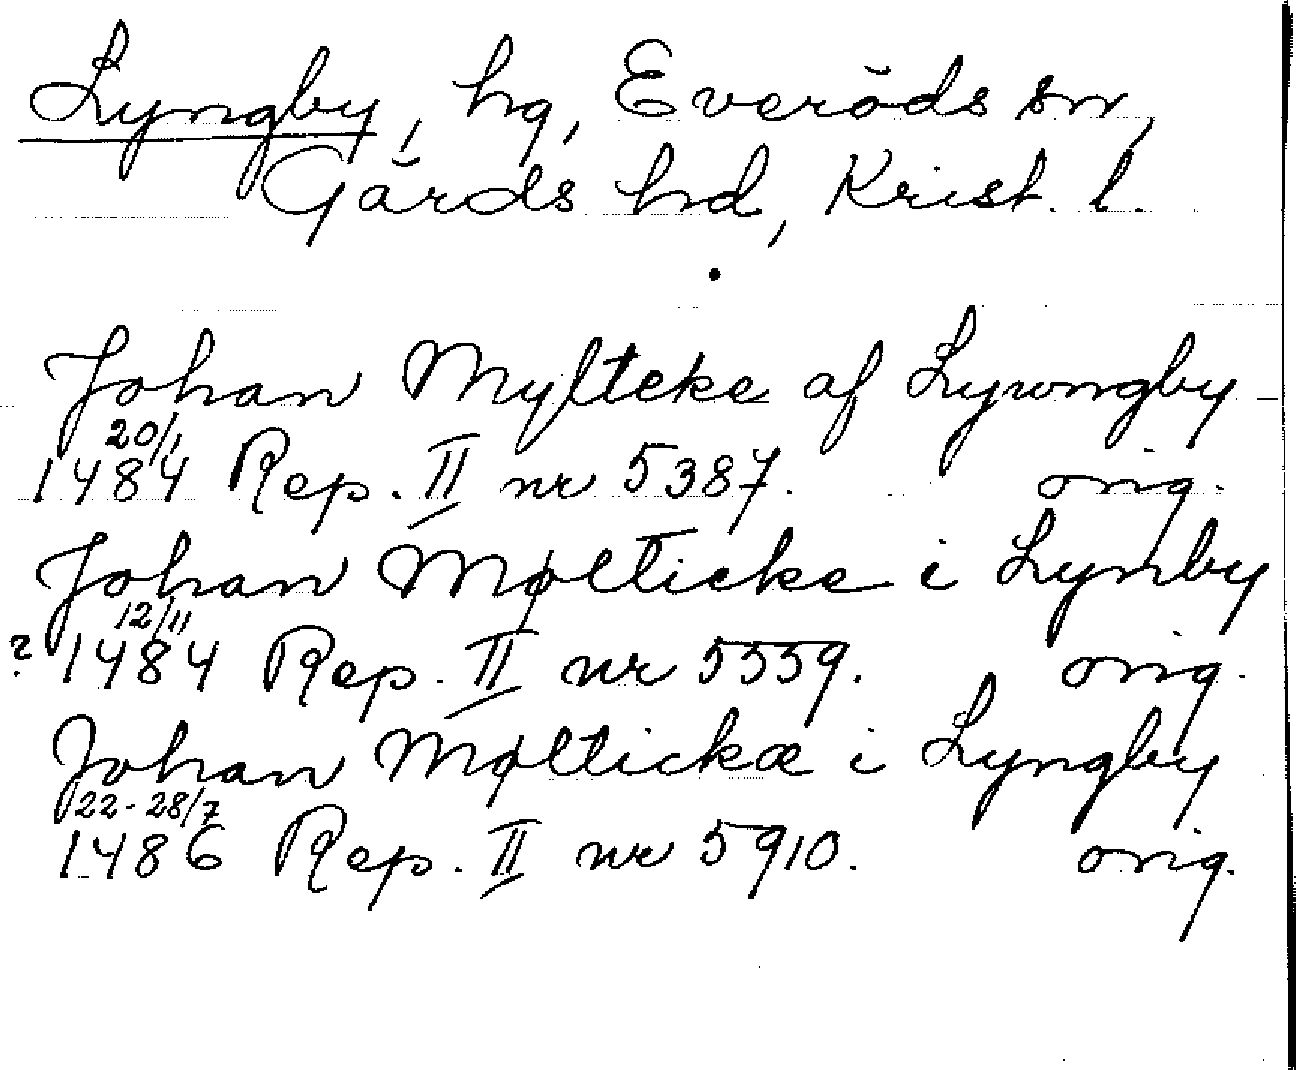 Lyngby, hg, Everöds sn,
Gärds hd, Krist. l.
Johan Mylteke af Lywngby
20/1
1484 Rep. II nr 5387. orig.
Johan Mølticke i Lynby
12/11
? 1484 Rep. II nr 5559. orig.
Johan Møltickæ i Lyngby
22-28/7
1486 Rep. II nr 5910. orig.